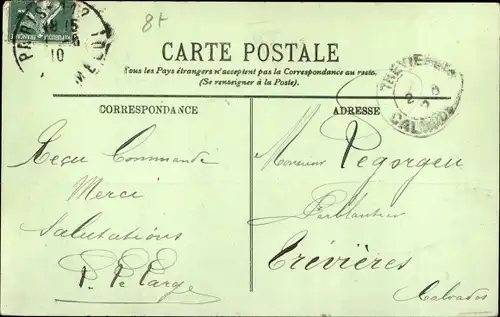 8t
CARTE POSTALE
Tous les Pays étrangers n'acceptent pas la Correspondance au recto.
(Se renseigner à la Poste).
CORRESPONDANCE
ADRESSE
TREVIERES
CALVADOS
PARIS
10
Reçu Commande
Merci
Salutations
Monsieur Pegorgeu
Trévières
Calvados